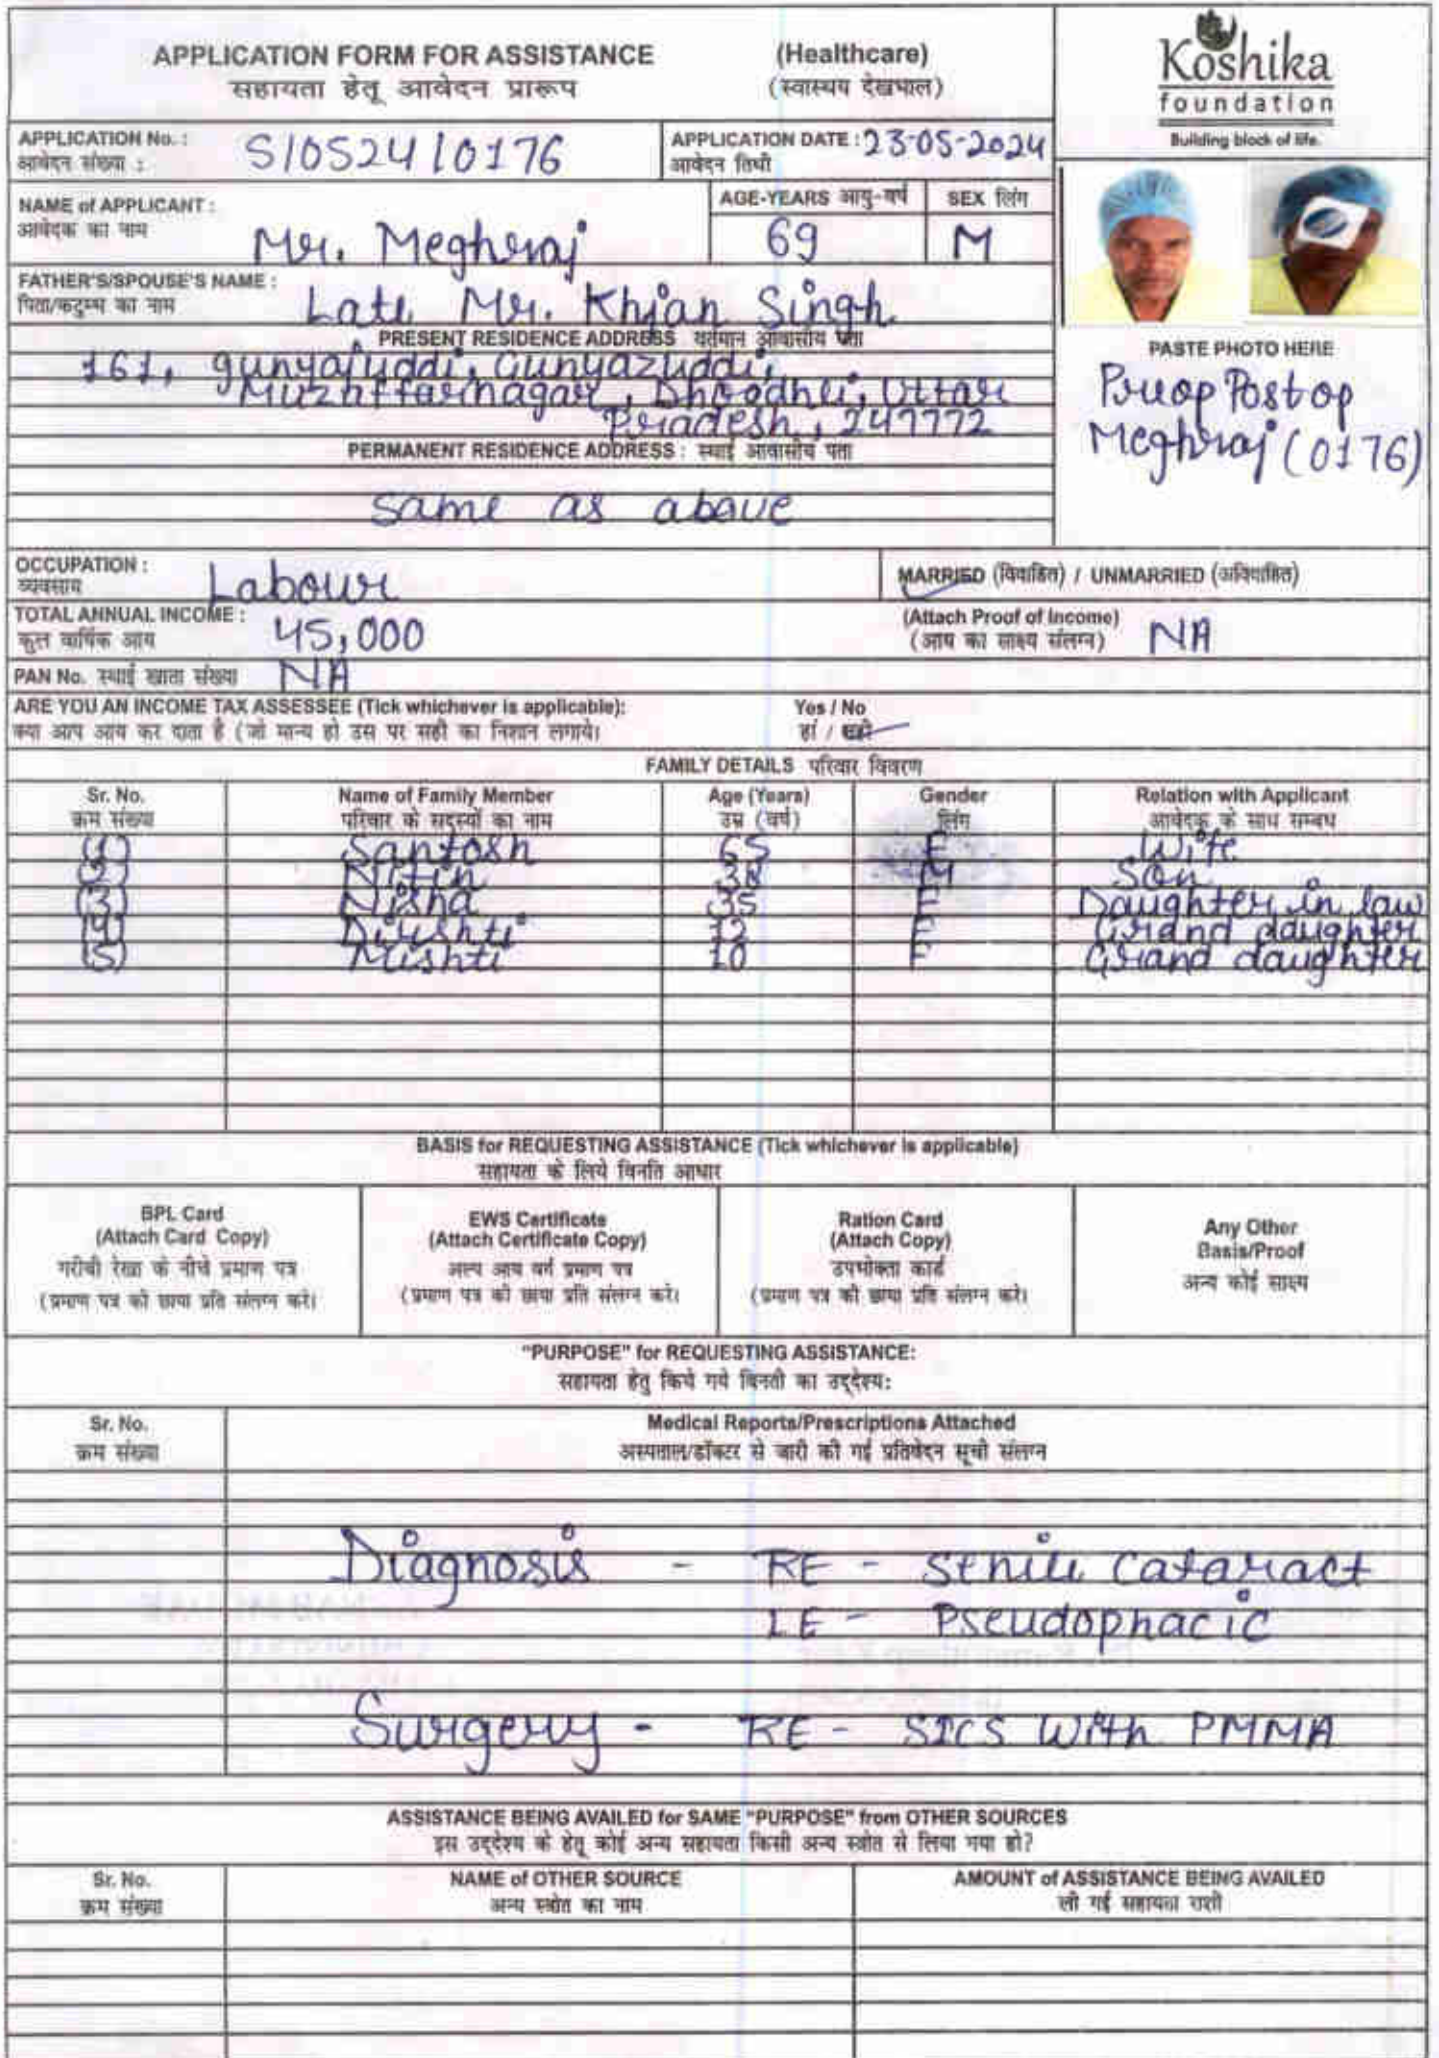 APPLICATION FORM FOR ASSISTANCE (Healthcare)
सहायता हेतू आवेदन प्रारूप (स्वास्थय देखभाल)
Koshika
foundation
Building block of life.
APPLICATION No. : S/0524/0176 APPLICATION DATE : 23-05-2024
आवेदन संख्या : आवेदन तिथी
NAME of APPLICANT : AGE-YEARS आयु-वर्ष SEX लिंग
आवेदक का नाम Mr. Meghraj 69 M
FATHER'S/SPOUSE'S NAME :
पिता/कटुम्ब का नाम Late Mr. Khjan Singh.
PRESENT RESIDENCE ADDRESS वर्तमान आवासीय पता
161, gunyajuddi, Gunyazuddi,
Muzaffarnagar, Dhoodhli, Uttar
Pradesh, 247772
PERMANENT RESIDENCE ADDRESS : स्थाई आवासीय पता
same as above
PASTE PHOTO HERE
Preop Postop
Meghraj (0176)
OCCUPATION : Labour MARRIED (विवाहित) / UNMARRIED (अविवाहित)
व्यवसाय
TOTAL ANNUAL INCOME : 45,000 (Attach Proof of Income) NA
कुल वार्षिक आय (आय का साक्ष्य संलग्न)
PAN No. स्थाई खाता संख्या NA
ARE YOU AN INCOME TAX ASSESSEE (Tick whichever is applicable): Yes / No
क्या आप आय कर दाता है (जो मान्य हो उस पर सही का निशान लगाये। हां /
FAMILY DETAILS परिवार विवरण
Sr. No. Name of Family Member Age (Years) Gender Relation with Applicant
क्रम संख्या परिवार के सदस्यों का नाम उम्र (वर्ष) लिंग आवेदक के साथ सम्बध
(1) Santosh 65 F Wife
(2) Nitin 38 M Son
(3) Nisha 35 F Daughter in law
(4) Dirishti 12 F Grand daughter
(5) Mishti 10 F Grand daughter
BASIS for REQUESTING ASSISTANCE (Tick whichever is applicable)
सहायता के लिये विनति आधार
BPL Card
(Attach Card Copy)
गरीबी रेखा के नीचे प्रमाण पत्र
(प्रमाण पत्र की छाया प्रति संलग्न करे।
EWS Certificate
(Attach Certificate Copy)
अल्प आय वर्ग प्रमाण पत्र
(प्रमाण पत्र की छाया प्रति संलग्न करे।
Ration Card
(Attach Copy)
उपभोक्ता कार्ड
(प्रमाण पत्र की छाया प्रति संलग्न करे।
Any Other
Basis/Proof
अन्य कोई साक्ष्य
"PURPOSE" for REQUESTING ASSISTANCE:
सहायता हेतु किये गये विनती का उद्देश्य:
Sr. No. Medical Reports/Prescriptions Attached
क्रम संख्या अस्पताल/डॉक्टर से जारी की गई प्रतिवेदन सूची संलग्न
Diagnosis - RE - Senile Cataract
LE - Pseudophacic
Surgery - RE - SICS With PMMA
ASSISTANCE BEING AVAILED for SAME "PURPOSE" from OTHER SOURCES
इस उद्देश्य के हेतू कोई अन्य सहायता किसी अन्य स्त्रोत से लिया गया हो?
Sr. No. NAME of OTHER SOURCE AMOUNT of ASSISTANCE BEING AVAILED
क्रम संख्या अन्य स्त्रोत का नाम ली गई सहायता राशी